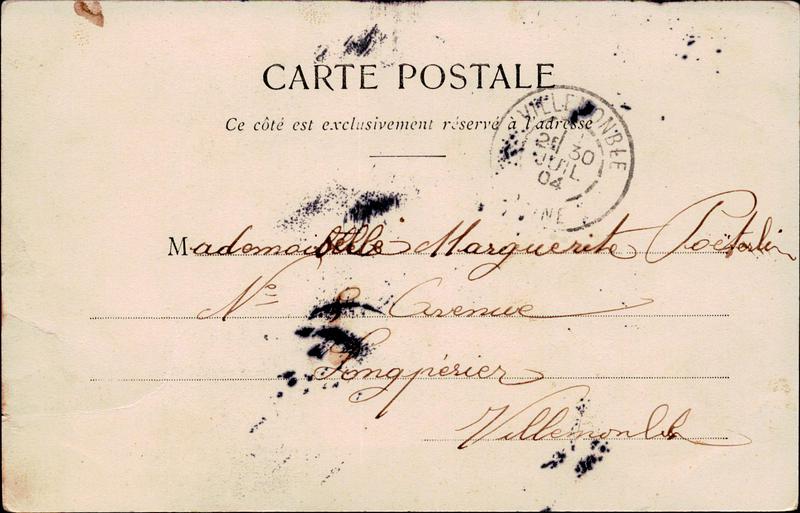 CARTE POSTALE
Ce côté est exclusivement réservé à l'adresse
VILLEMONBLE
30
JUIL
04
Mademoiselle Marguerite
No 8 Avenue
Longpérier
Villemonble